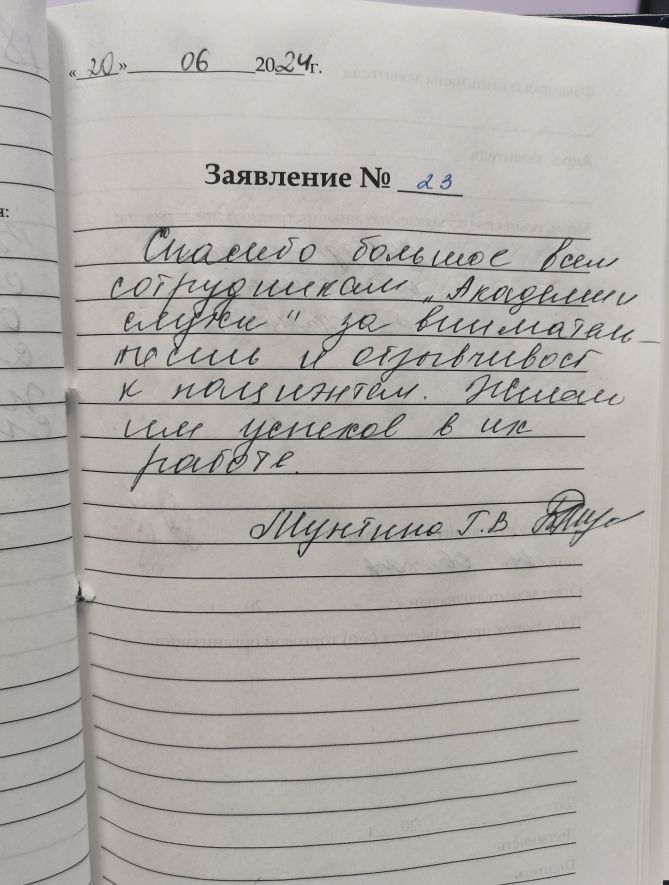 «20» 06 2024г.
Заявление № 23
Спасибо большое всем
сотрудникам „Академии
слуха" за вниматель-
ность и отзывчивост
к пациентам. Желаю
им успехов в их
работе.
Мунтина Г.В.